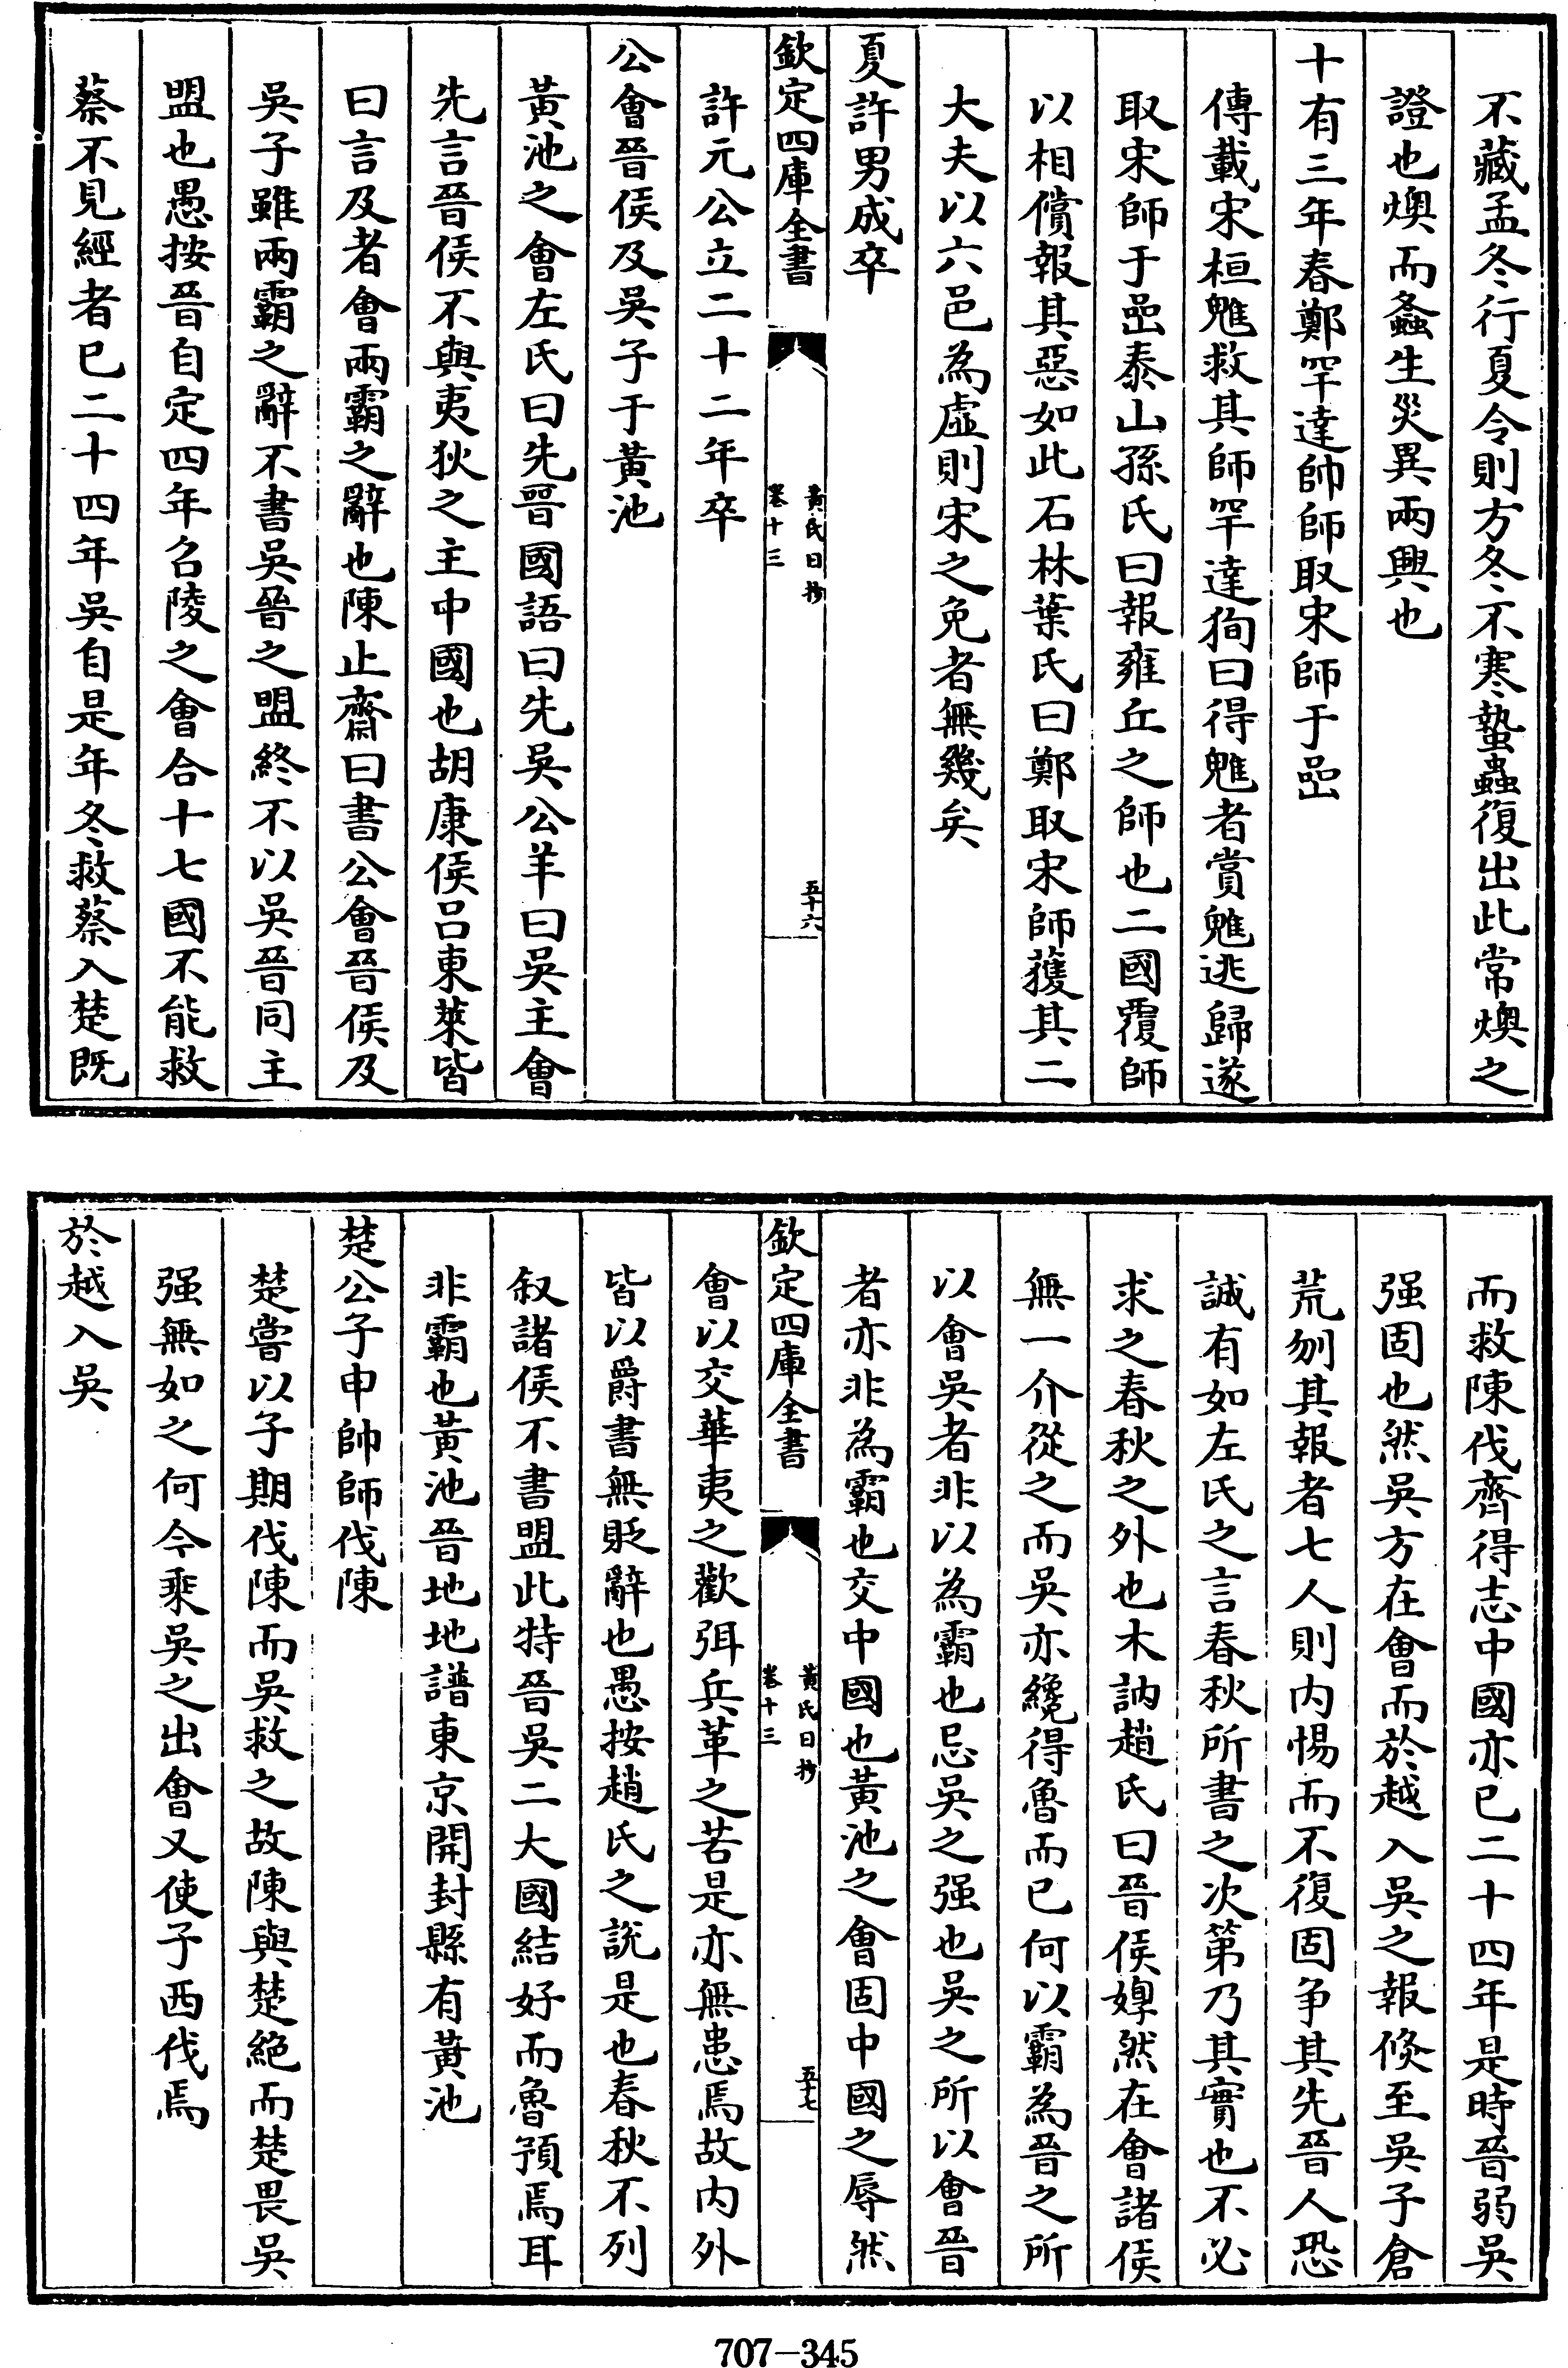 不藏孟冬行夏令則方冬不寒蟄蟲復出此常燠之
證也燠而螽生災異兩興也
十有三年春鄭罕達帥師取宋師于嵒
傳載宋桓魋救其師罕達徇曰得魋者賞魋逃歸遂
取宋師于嵒泰山孫氏曰報雍丘之師也二國覆師
以相償報其惡如此石林葉氏曰鄭取宋師獲其二
大夫以六邑為虛則宋之免者無幾矣
夏許男成卒
欽定四庫全書
黃氏日抄
卷十三
五十六
許元公立二十二年卒
公會晉侯及吳子于黃池
黃池之會左氏曰先晉國語曰先吳公羊曰吳主會
先言晉侯不與夷狄之主中國也胡康侯呂東萊皆
曰言及者會兩霸之辭也陳止齋曰書公會晉侯及
吳子雖兩霸之辭不書吳晉之盟終不以吳晉同主
盟也愚按晉自定四年召陵之會合十七國不能救
蔡不見經者已二十四年吳自是年冬救蔡入楚既
而救陳伐齊得志中國亦已二十四年是時晉弱吳
强固也然吳方在會而於越入吳之報倏至吳子倉
荒刎其報者七人則内惕而不復固爭其先晉人恐
誠有如左氏之言春秋所書之次第乃其實也不必
求之春秋之外也木訥趙氏曰晉侯嫭然在會諸侯
無一介從之而吳亦纔得魯而已何以霸為晉之所
以會吳者非以為霸也忌吳之强也吳之所以會晉
者亦非為霸也交中國也黃池之會固中國之辱然
欽定四庫全書
黃氏日抄
卷十三
五十七
會以交華夷之歡弭兵革之苦是亦無患焉故内外
皆以爵書無貶辭也愚按趙氏之說是也春秋不列
叙諸侯不書盟此特晉吳二大國結好而魯預焉耳
非霸也黃池晉地地譜東京開封縣有黃池
楚公子申帥師伐陳
楚嘗以子期伐陳而吳救之故陳與楚絕而楚畏吳
强無如之何今乘吳之出會又使子西伐焉
於越入吳
707-345